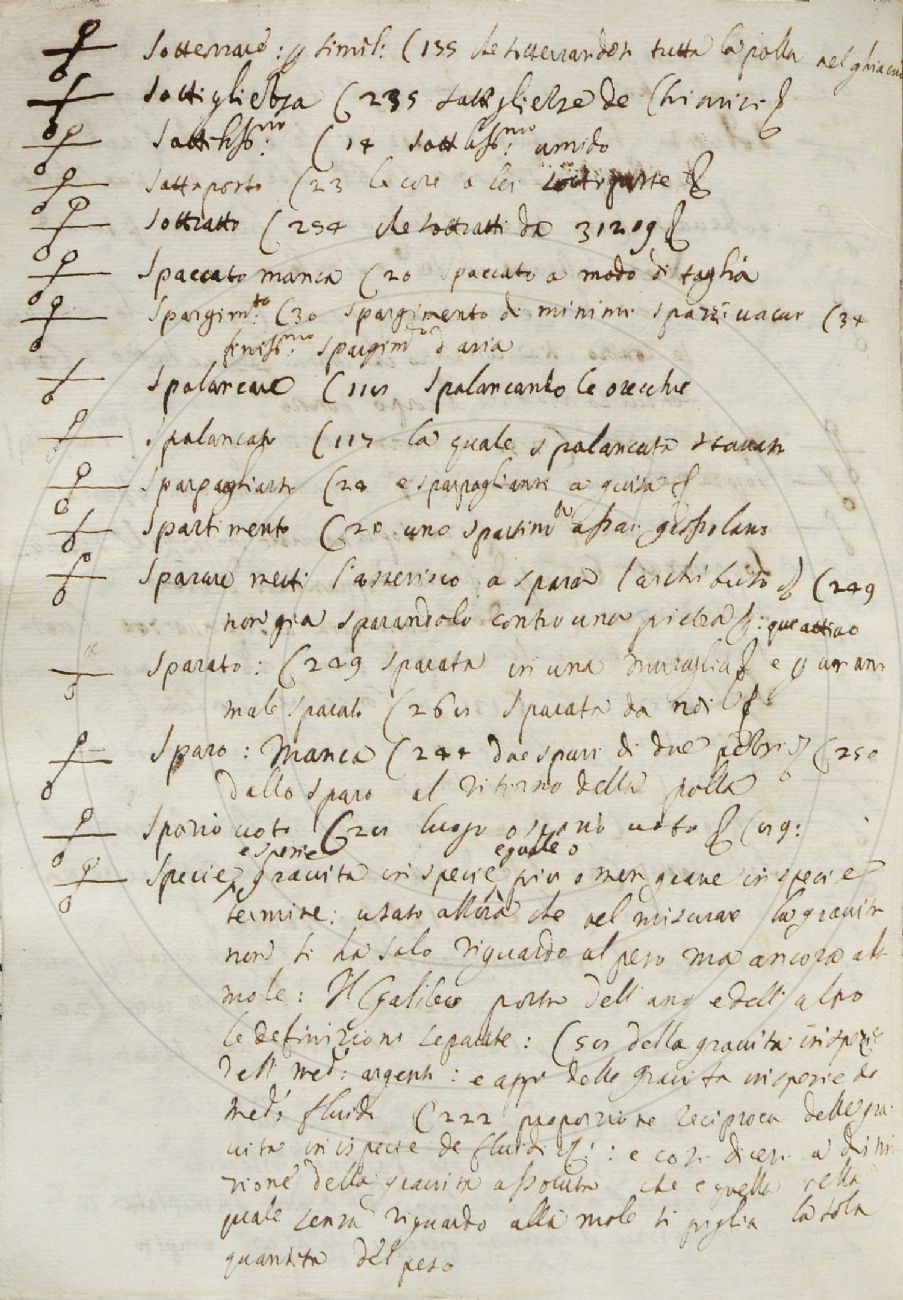 Sotterrare: p simil: (135 che sotterrandosi tutta la palla nel ghiaccio
Sottigliezza (235 sottigliezze de Chimici
Sottiliss.mo: (14 sottiliss.mo: umido
Sottoporto (23 la core a lei sottoposte
Sottratto (254 che sottratti da 31209
Spaccato manca (20 spaccato a modo di taglia
Spargim.to: (30 spargimento di minimi spazzi vacui (34
finiss.mo: spargim.to d'aria
Spalancare (116 Spalancando le orecchie
Spalancato (115 la quale spalancata
Sparpagliante (24 e sparpagliante a guisa
Spartimento (20 uno spartim.to assai
Sparare metti l'asterisco a sparar l'archibuso (249
non già sparandolo contro una pietra: quì attivo
Sparato: (249 sparata in una muraglia e p un ani
male sparato (261 Sparata da noi
Sparo: Manca (244 due spari di due pezzi (250
dallo sparo al ritorno della palla
Spazio voto (201 luogo o spazio voto
e spezie eguale o
Specie, gravità in specie più o men grave in specie
termine: usato allora che nel misurare la gravità
non si ha solo riguardo al peso ma ancora alla
mole: Il Galileo porta dell'uno e dell'altro
le definizioni separate: (501 della gravità in spezie
dell med.i argenti: e app.o delle gravità in spezie de
med.i fluidi (222 proporzione reciproca delle gra
vità in ispecie de fluidi: e così dicesi a distin
zione della gravità assoluta che è quella nella
quale senza riguardo alla mole si piglia la sola
quantità del peso